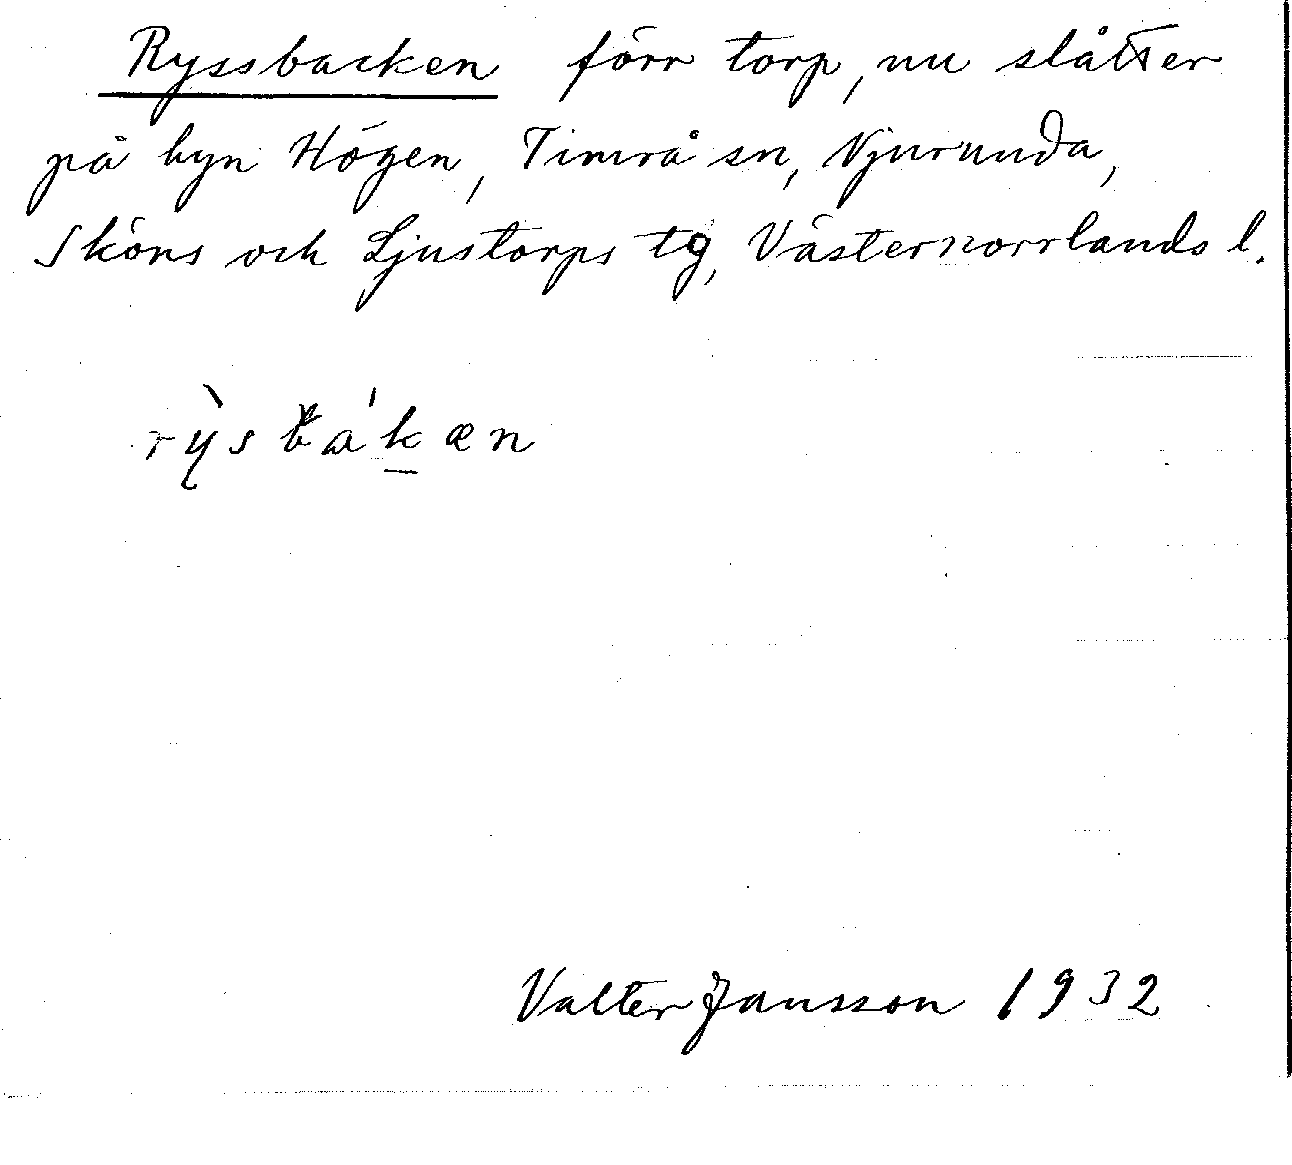 Ryssbacken förr torp, nu slåtter
på byn Högen, Timrå sn, Njurunda,
Sköns och Ljustorps tg, Västernorrlands l.
rỳsbák̲æn
Valter Jansson 1932